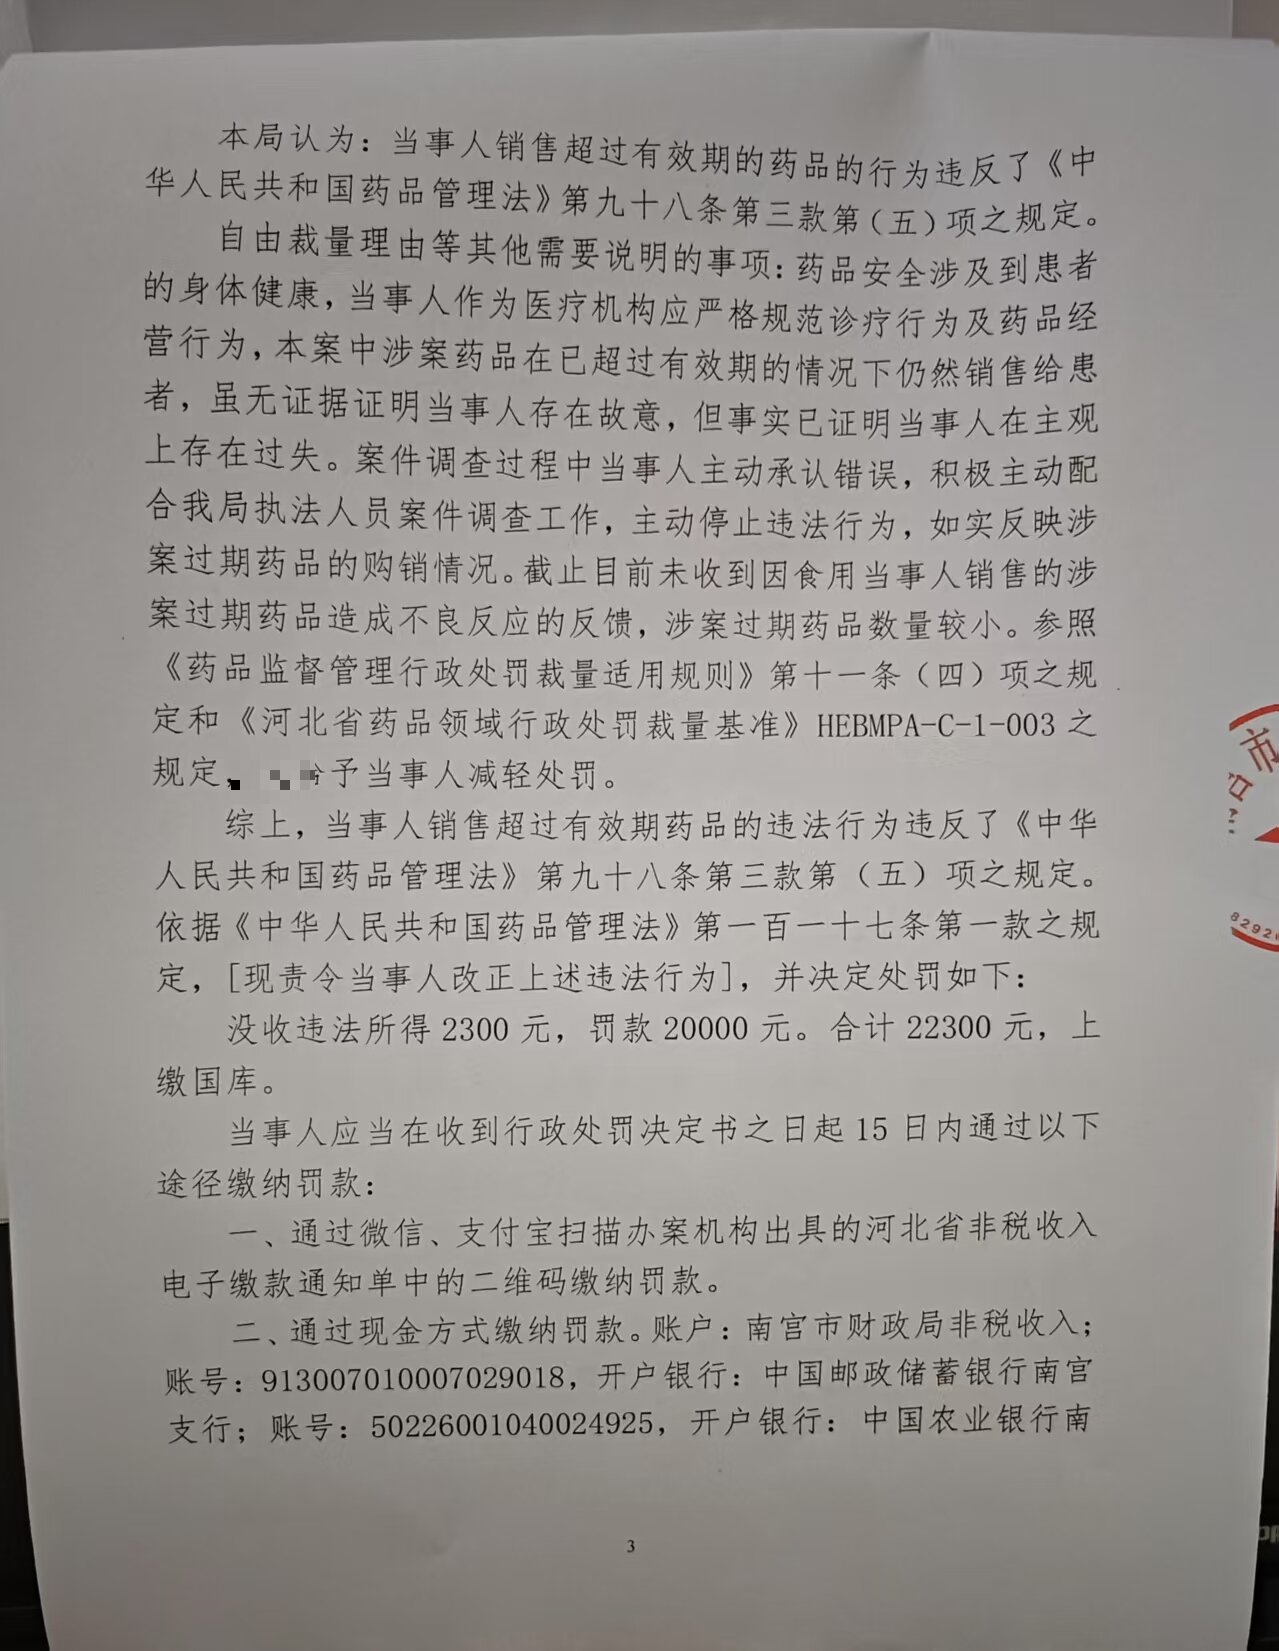 本局认为：当事人销售超过有效期的药品的行为违反了《中
华人民共和国药品管理法》第九十八条第三款第（五）项之规定。
自由裁量理由等其他需要说明的事项：药品安全涉及到患者
的身体健康，当事人作为医疗机构应严格规范诊疗行为及药品经
营行为，本案中涉案药品在已超过有效期的情况下仍然销售给患
者，虽无证据证明当事人存在故意，但事实已证明当事人在主观
上存在过失。案件调查过程中当事人主动承认错误，积极主动配
合我局执法人员案件调查工作，主动停止违法行为，如实反映涉
案过期药品的购销情况。截止目前未收到因食用当事人销售的涉
案过期药品造成不良反应的反馈，涉案过期药品数量较小。参照
《药品监督管理行政处罚裁量适用规则》第十一条（四）项之规
定和《河北省药品领域行政处罚裁量基准》HEBMPA-C-1-003之
规定，予当事人减轻处罚。
综上，当事人销售超过有效期药品的违法行为违反了《中华
人民共和国药品管理法》第九十八条第三款第（五）项之规定。
依据《中华人民共和国药品管理法》第一百一十七条第一款之规
定，[现责令当事人改正上述违法行为]，并决定处罚如下：
没收违法所得2300元，罚款20000元。合计22300元，上
缴国库。
当事人应当在收到行政处罚决定书之日起15日内通过以下
途径缴纳罚款：
一、通过微信、支付宝扫描办案机构出具的河北省非税收入
电子缴款通知单中的二维码缴纳罚款。
二、通过现金方式缴纳罚款。账户：南宫市财政局非税收入；
账号：913007010007029018，开户银行：中国邮政储蓄银行南宫
支行；账号：50226001040024925，开户银行：中国农业银行南
3
市
8292